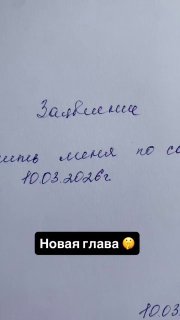 Заявление
меня по
10.03.2026г
Новая глава 🤫
10.03